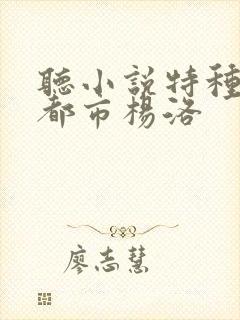 聽小說特種
都市楊洛
廖志慧